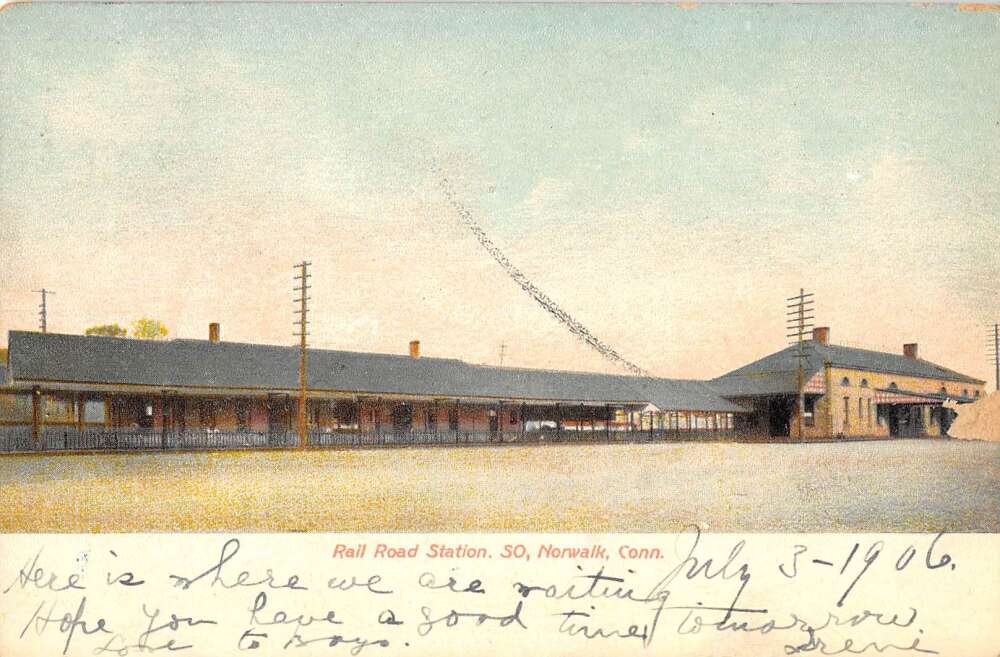 Rail Road Station. SO, Norwalk, Conn.
July 3-1906.
Here is where we are waiting
Hope you have a good time tomorrow.
Love to boys. Irene